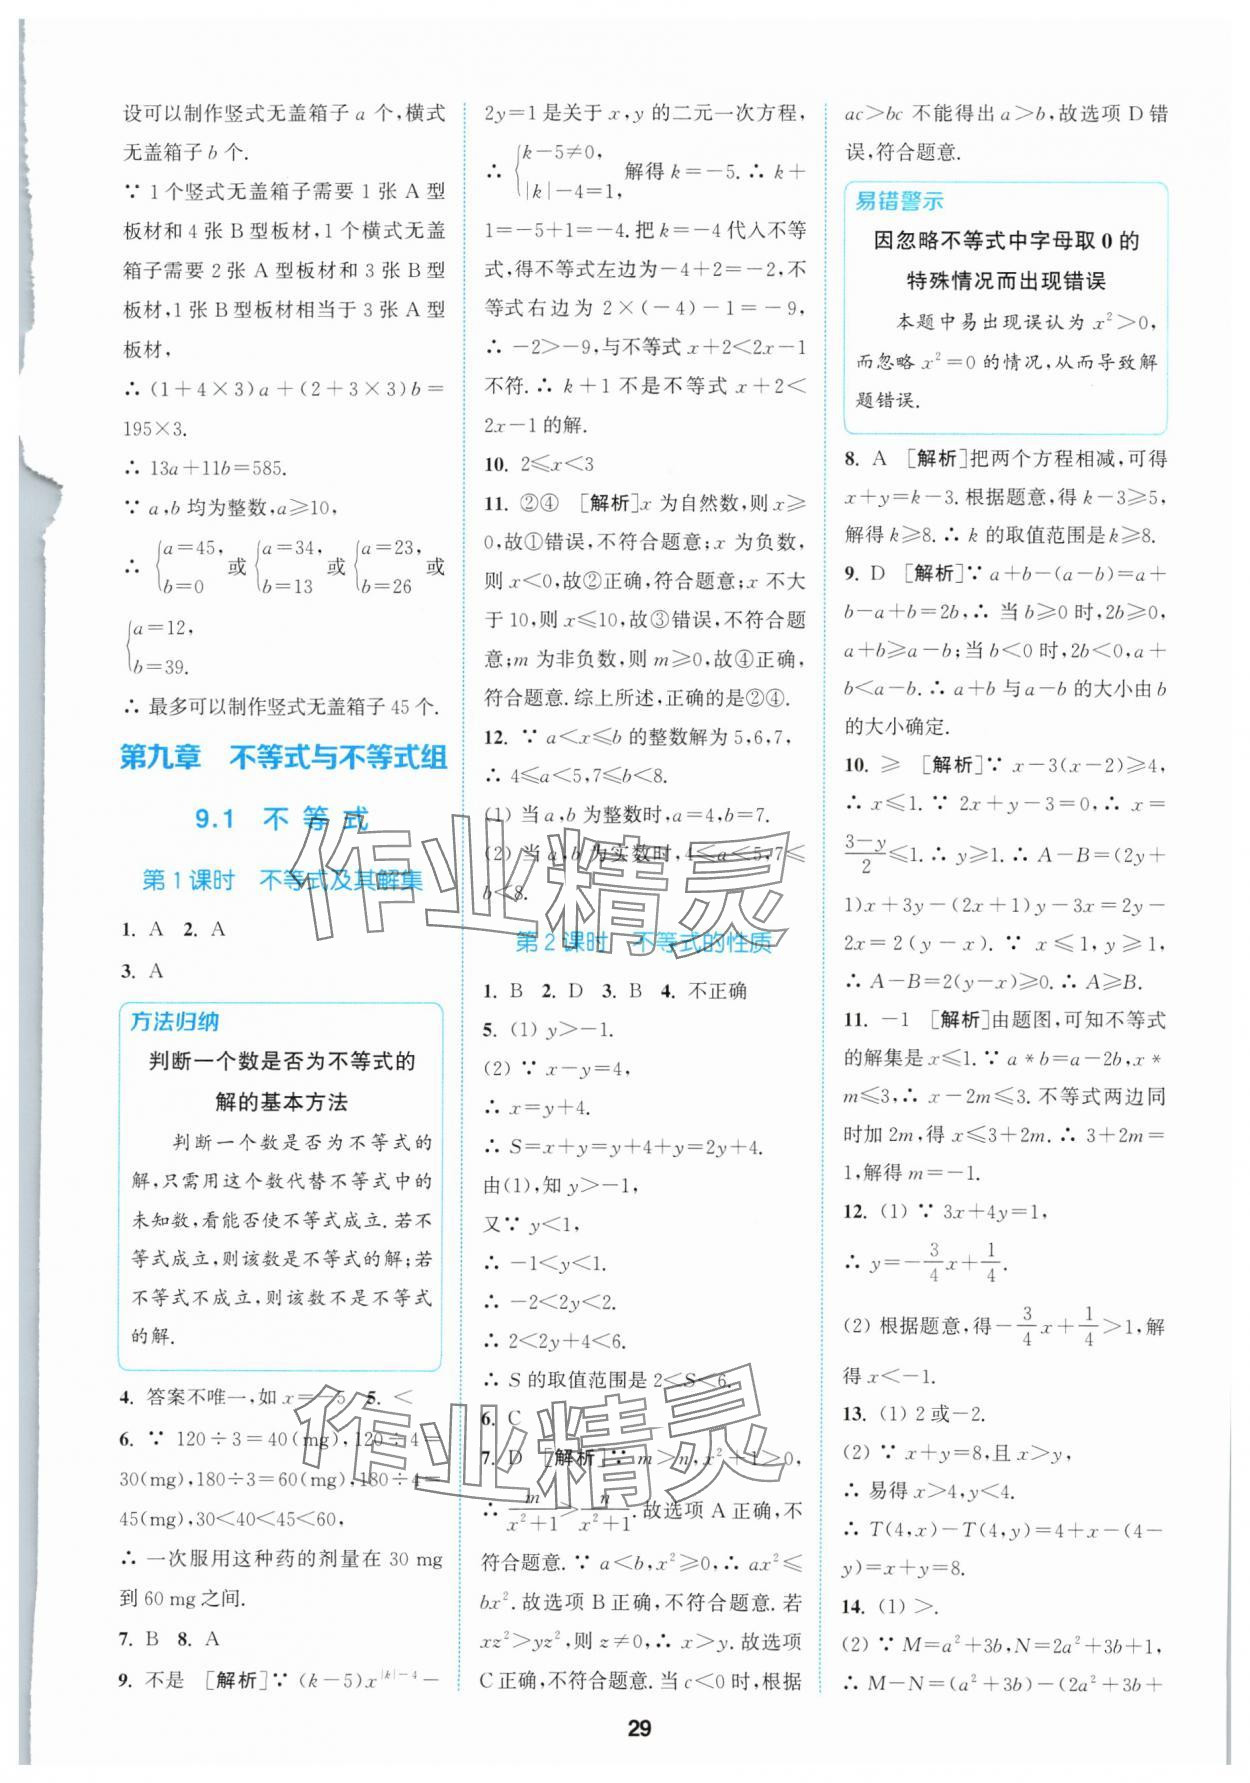 设可以制作竖式无盖箱子 a 个,横式
无盖箱子 b 个.
∵ 1 个竖式无盖箱子需要 1 张 A 型
板材和 4 张 B 型板材,1 个横式无盖
箱子需要 2 张 A 型板材和 3 张 B 型
板材,1 张 B 型板材相当于 3 张 A 型
板材,
∴ (1+4×3)a+(2+3×3)b=
195×3.
∴ 13a+11b=585.
∵ a,b 均为整数,a≥10,
∴ {a=45, b=0 或 {a=34, b=13 或 {a=23, b=26 或
{a=12, b=39.
∴ 最多可以制作竖式无盖箱子 45 个.
第九章 不等式与不等式组
9.1 不 等 式
第 1 课时 不等式及其解集
1. A 2. A
3. A
方法归纳
判断一个数是否为不等式的
解的基本方法
判断一个数是否为不等式的
解,只需用这个数代替不等式中的
未知数,看能否使不等式成立.若不
等式成立,则该数是不等式的解;若
不等式不成立,则该数不是不等式
的解.
4. 答案不唯一,如 x=-5 5. <
6. ∵ 120÷3=40(mg),120÷4=
30(mg),180÷3=60(mg),180÷4=
45(mg),30<40<45<60,
∴ 一次服用这种药的剂量在 30 mg
到 60 mg 之间.
7. B 8. A
9. 不是 [解析]∵ (k-5)x^{|k|-4}-
2y=1 是关于 x,y 的二元一次方程,
∴ {k-5≠0, |k|-4=1, 解得 k=-5.∴ k+
1=-5+1=-4.把 k=-4 代入不等
式,得不等式左边为-4+2=-2,不
等式右边为 2×(-4)-1=-9,
∴ -2>-9,与不等式 x+2<2x-1
不符.∴ k+1 不是不等式 x+2<
2x-1 的解.
10. 2≤x<3
11. ②④ [解析]x 为自然数,则 x≥
0,故①错误,不符合题意;x 为负数,
则 x<0,故②正确,符合题意;x 不大
于 10,则 x≤10,故③错误,不符合题
意;m 为非负数,则 m≥0,故④正确,
符合题意.综上所述,正确的是②④.
12. ∵ a<x≤b 的整数解为 5,6,7,
∴ 4≤a<5,7≤b<8.
(1) 当 a,b 为整数时,a=4,b=7.
(2) 当 a,b 为实数时,4≤a<5,7≤
b<8.
第 2 课时 不等式的性质
1. B 2. D 3. B 4. 不正确
5. (1) y>-1.
(2) ∵ x-y=4,
∴ x=y+4.
∴ S=x+y=y+4+y=2y+4.
由(1),知 y>-1,
又∵ y<1,
∴ -1<y<1.
∴ -2<2y<2.
∴ 2<2y+4<6.
∴ S 的取值范围是 2<S<6.
6. C
7. D [解析]∵ m>n,x²+1>0,
∴ m/(x²+1)>n/(x²+1).故选项 A 正确,不
符合题意.∵ a<b,x²≥0,∴ ax²≤
bx².故选项 B 正确,不符合题意.若
xz²>yz²,则 z≠0,∴ x>y.故选项
C 正确,不符合题意.当 c<0 时,根据
ac>bc 不能得出 a>b,故选项 D 错
误,符合题意.
易错警示
因忽略不等式中字母取 0 的
特殊情况而出现错误
本题中易出现误认为 x²>0,
而忽略 x²=0 的情况,从而导致解
题错误.
8. A [解析]把两个方程相减,可得
x+y=k-3.根据题意,得 k-3≥5,
解得 k≥8.∴ k 的取值范围是k≥8.
9. D [解析]∵ a+b-(a-b)=a+
b-a+b=2b,∴ 当 b≥0 时,2b≥0,
a+b≥a-b;当 b<0 时,2b<0,a+
b<a-b.∴ a+b 与 a-b 的大小由 b
的大小确定.
10. ≥ [解析]∵ x-3(x-2)≥4,
∴ x≤1.∵ 2x+y-3=0,∴ x=
(3-y)/2≤1.∴ y≥1.∴ A-B=(2y+
1)x+3y-(2x+1)y-3x=2y-
2x=2(y-x).∵ x≤1,y≥1,
∴ A-B=2(y-x)≥0.∴ A≥B.
11. -1 [解析]由题图,可知不等式
的解集是 x≤1.∵ a*b=a-2b,x*
m≤3,∴ x-2m≤3.不等式两边同
时加 2m,得 x≤3+2m.∴ 3+2m=
1,解得 m=-1.
12. (1) ∵ 3x+4y=1,
∴ y=-3/4x+1/4.
(2) 根据题意,得-3/4x+1/4>1,解
得 x<-1.
13. (1) 2 或-2.
(2) ∵ x+y=8,且 x>y,
∴ 易得 x>4,y<4.
∴ T(4,x)-T(4,y)=4+x-(4-
y)=x+y=8.
14. (1) >.
(2) ∵ M=a²+3b,N=2a²+3b+1,
∴ M-N=(a²+3b)-(2a²+3b+
29
作业精灵
作业精灵